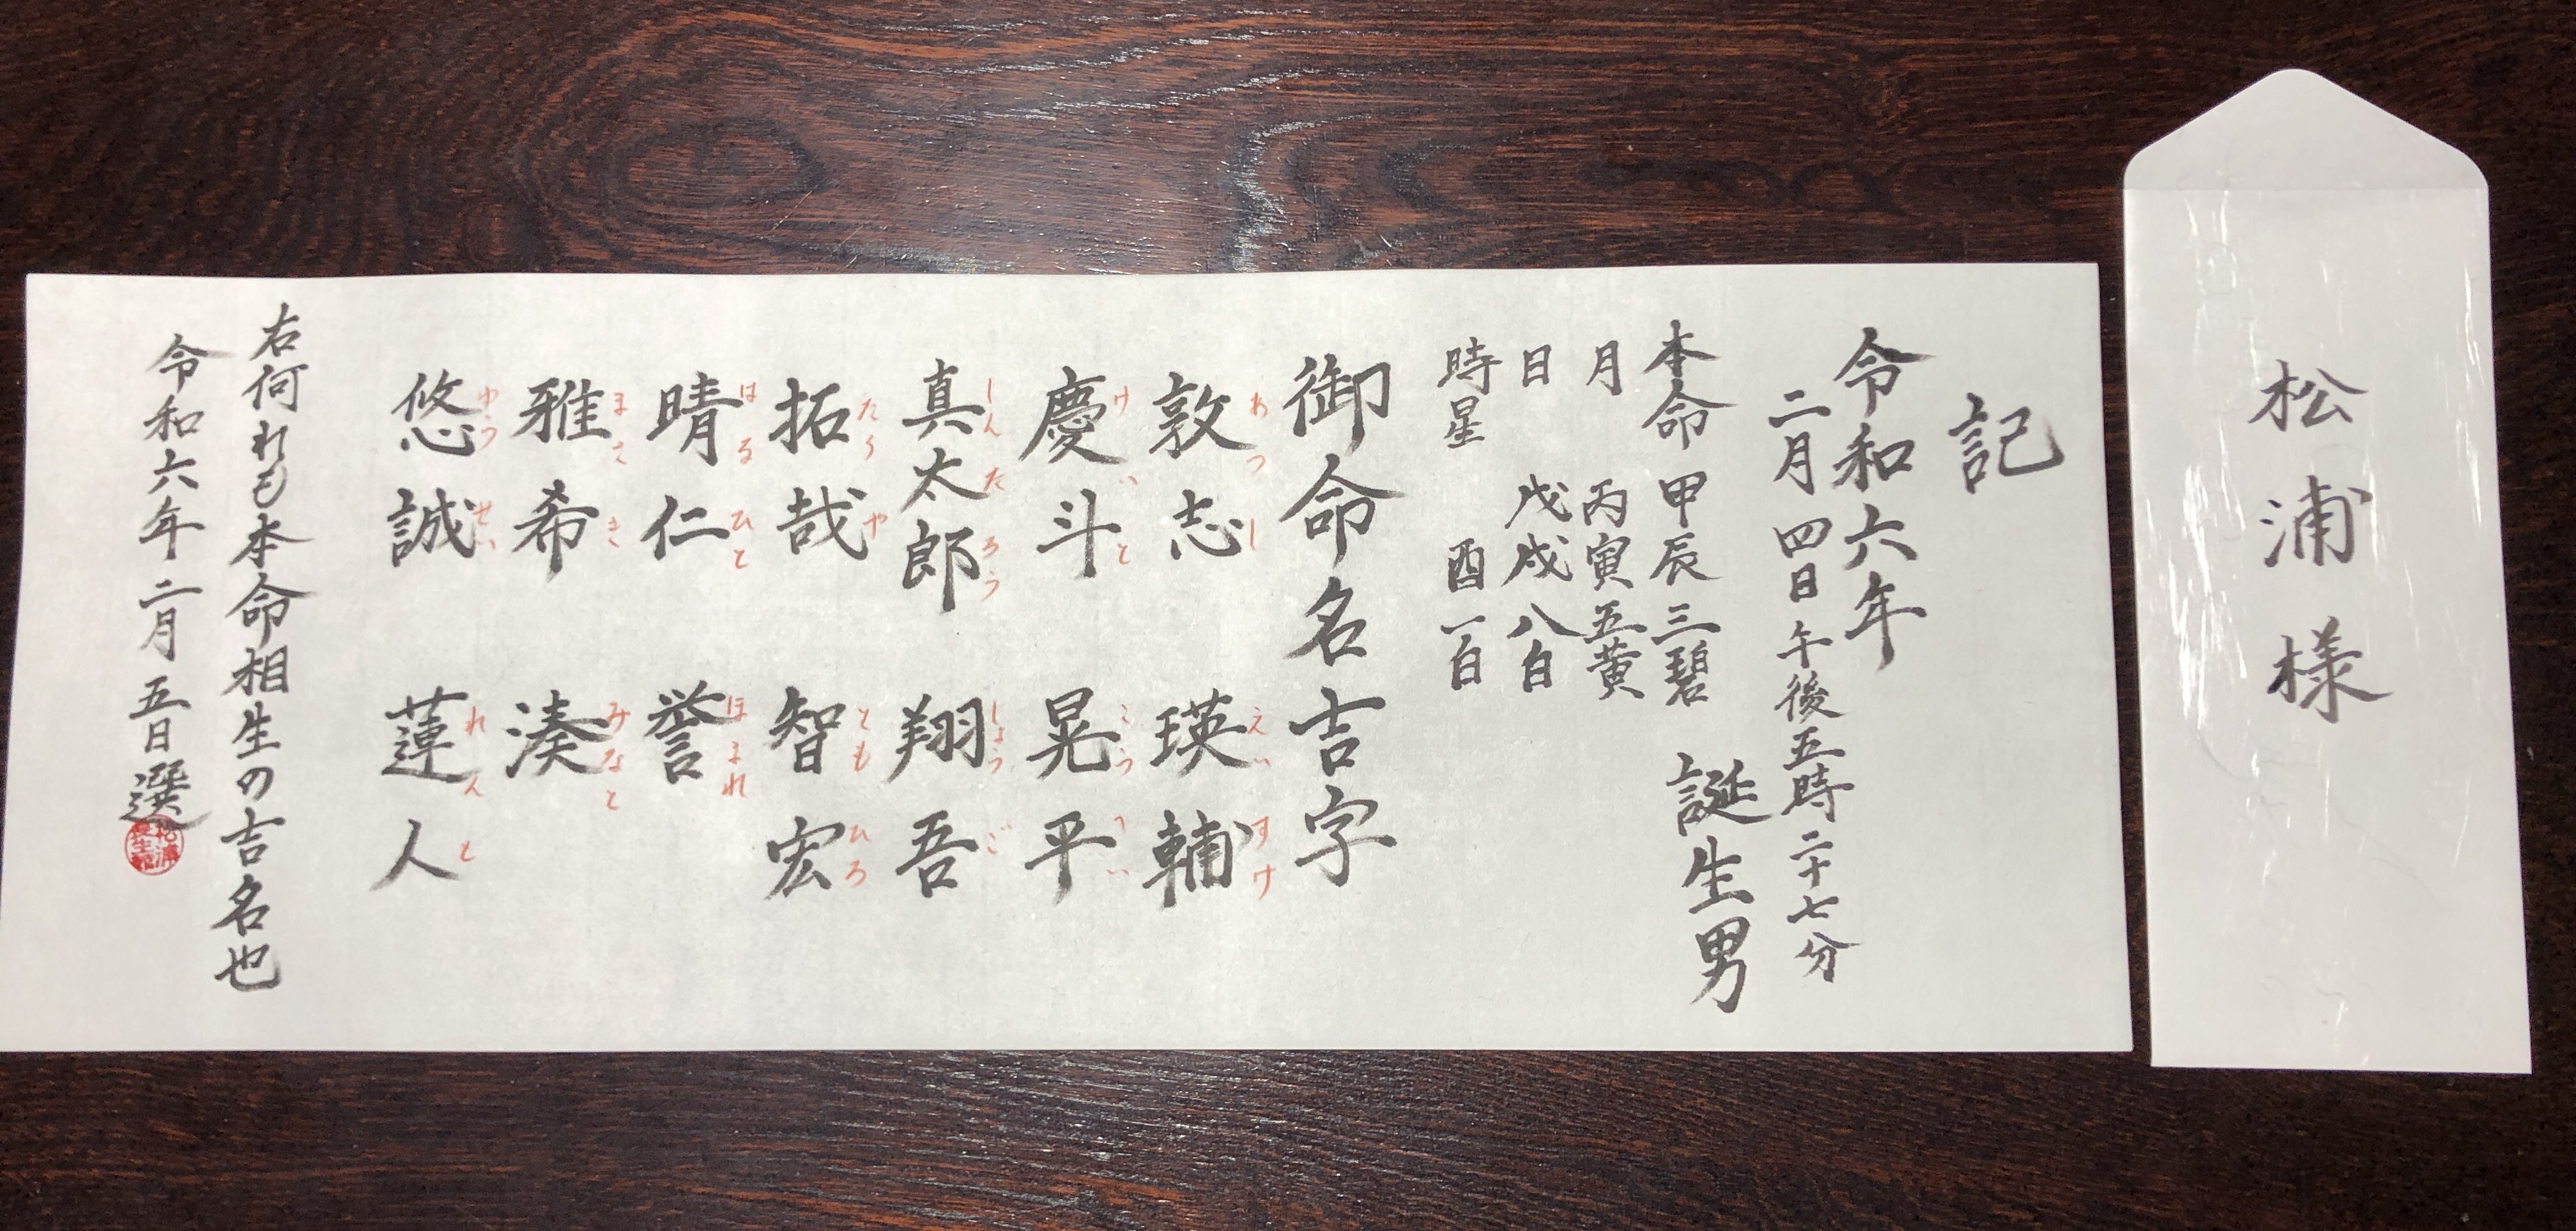 松浦様
記
令和六年
二月四日午後五時二十七分
誕生男
本命 甲辰 三碧
月 丙寅 五黄
日 戊戌 八白
時星 酉 一白
御命名吉字
敦志 あつし
瑛輔 えいすけ
慶斗 けいと
晃平 こうへい
真太郎 しんたろう
翔吾 しょうご
拓哉 たくや
智宏 ともひろ
晴仁 はるひと
誉 ほまれ
雅希 まさき
湊 みなと
悠誠 ゆうせい
蓮人 れんと
右何れも本命相生の吉名也
令和六年二月五日選